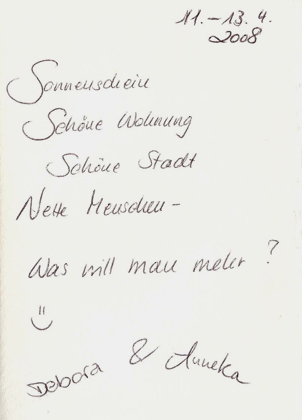 11.-13.4.
2008
Sonnenschein
Schöne Wohnung
Schöne Stadt
Nette Menschen -
Was will man mehr ?
Debora & Anneka